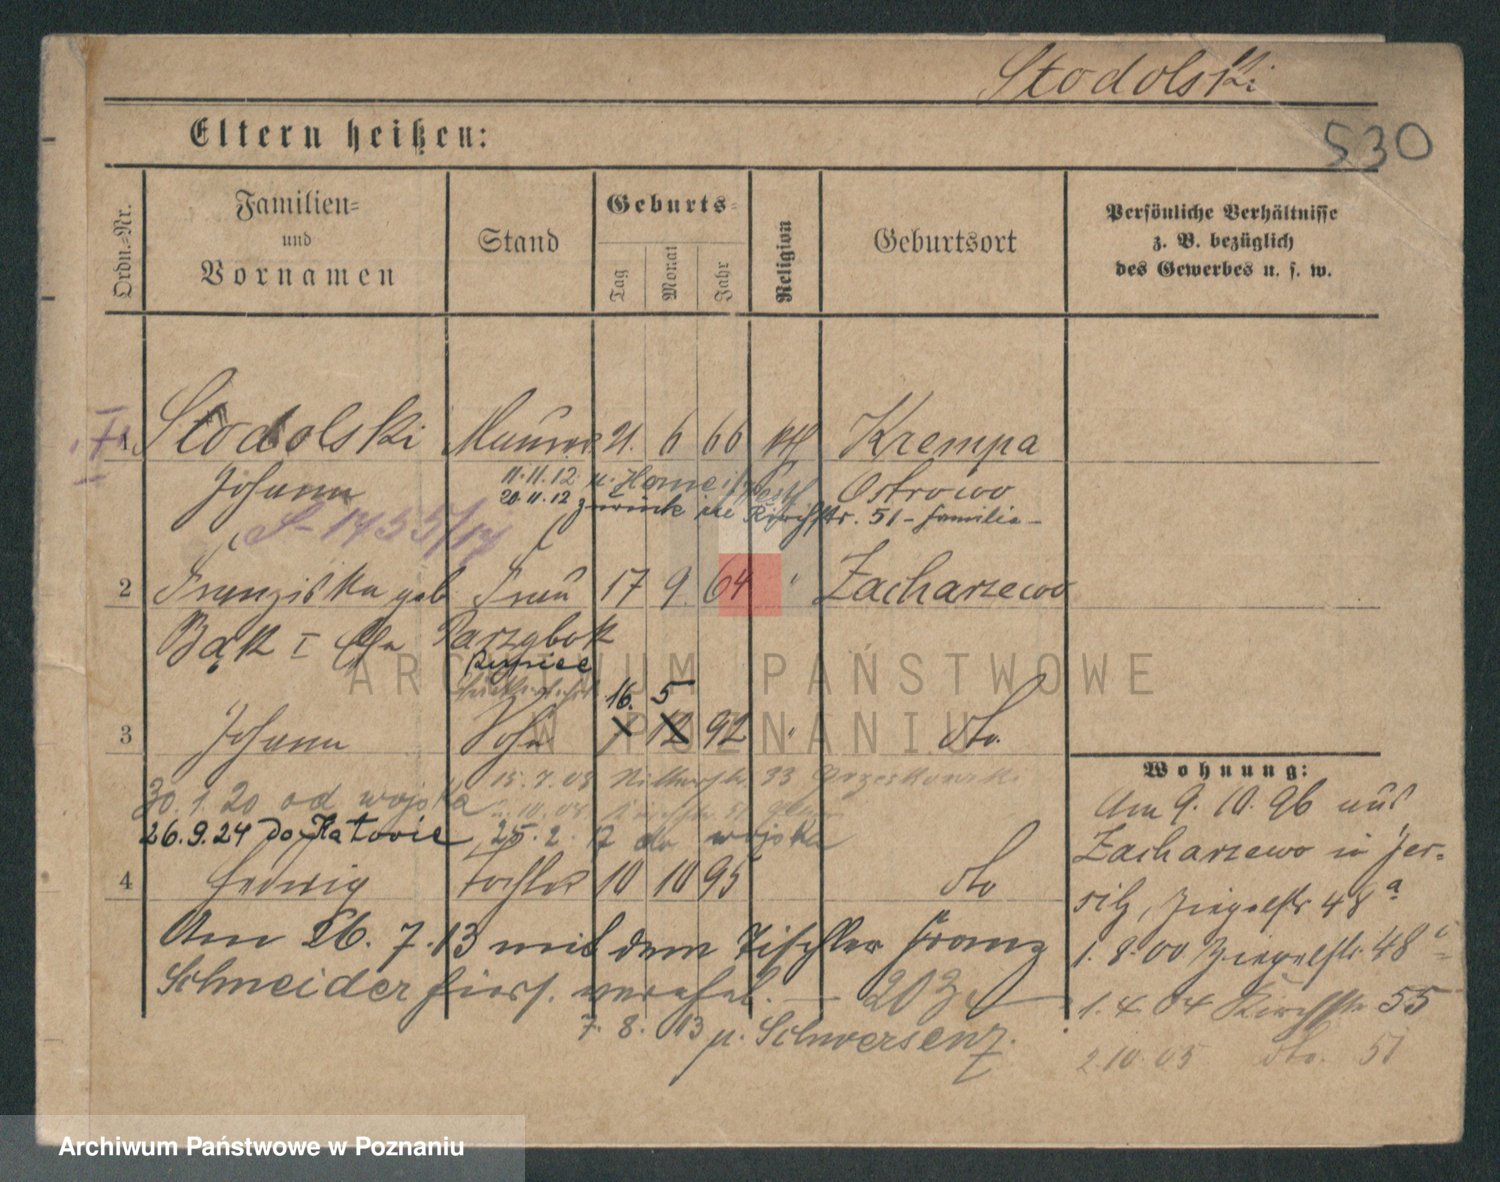 Stodolski
530
Eltern heißen:
Ordn.-Nr.
Familien- und Vornamen
Stand
Geburts-
Tag
Monat
Jahr
Religion
Geburtsort
Persönliche Verhältnisse
z. B. bezüglich
des Gewerbes u. s. w.
1 Stodolski Maurer 21. 6 66 kth Krempa
Johann 11.11.12 n. Ostrowo
20.11.12 zurück Kirchstr. 51 - Familie -
2 Franziska geb Frau 17 9. 64 " Zacharzewo
Bąk I
16. 5
3 Johann Sohn 12 92 " dto.
15.7.03 33
30.1.20 od wojska
26.9.24 do Katowic 25.2.17 do wojska
4 Hedwig Tochter 10 10 95 dto
Am 26.7.13 mit dem Tischler Franz
Schneider hiers. verehel.
7.8.13 n. Schwersenz.
Wohnung:
Am 9.10.96 aus
Zacharzewo in Jer-
sitz, Ziegelstr 48a
1.8.00 Ziegelstr. 48
1.4.04 Kirchstr 55
2.10.05 dto. 51
ARCHIWUM PAŃSTWOWE
W POZNANIU
Archiwum Państwowe w Poznaniu